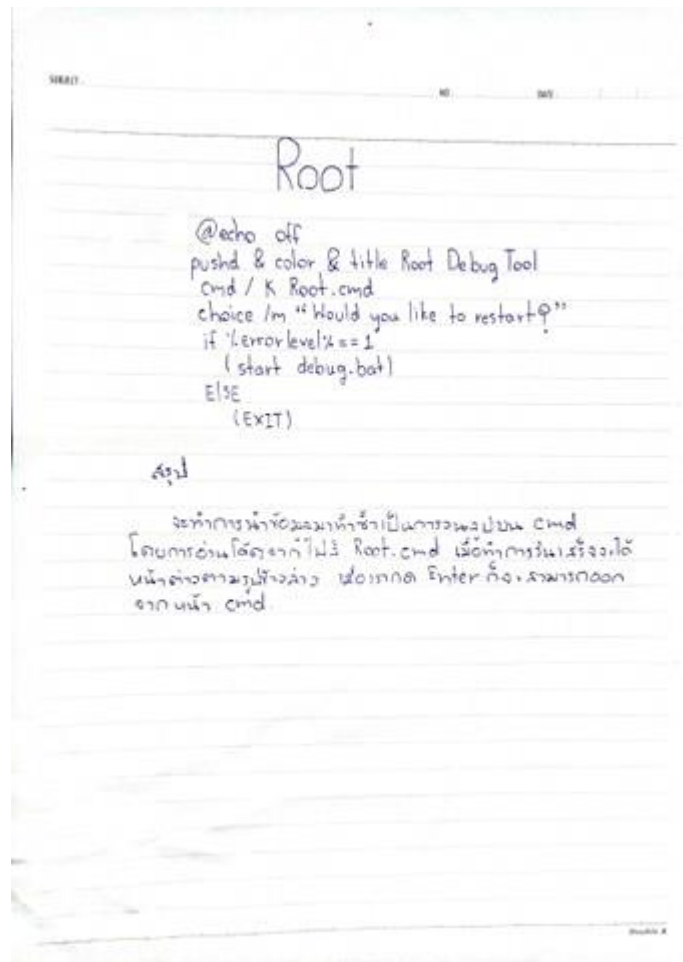 SUBJECT
NO. DATE
Root
@echo off
pushd & color & title Root Debug Tool
cmd / K Root.cmd
choice /m "Would you like to restart?"
if %errorlevel% == 1
(start debug.bat)
ELSE
(EXIT)
สรุป
จะทำการนำข้อมูลมาทำซ้ำเป็นการวนลูปบน cmd
โดยการอ่านโค้ดจากไฟล์ Root.cmd เมื่อทำการรันเสร็จจะได้
หน้าต่างตามรูปข้างล่าง เมื่อเรากด Enter ก็จะสามารถออก
จากหน้า cmd
Double A